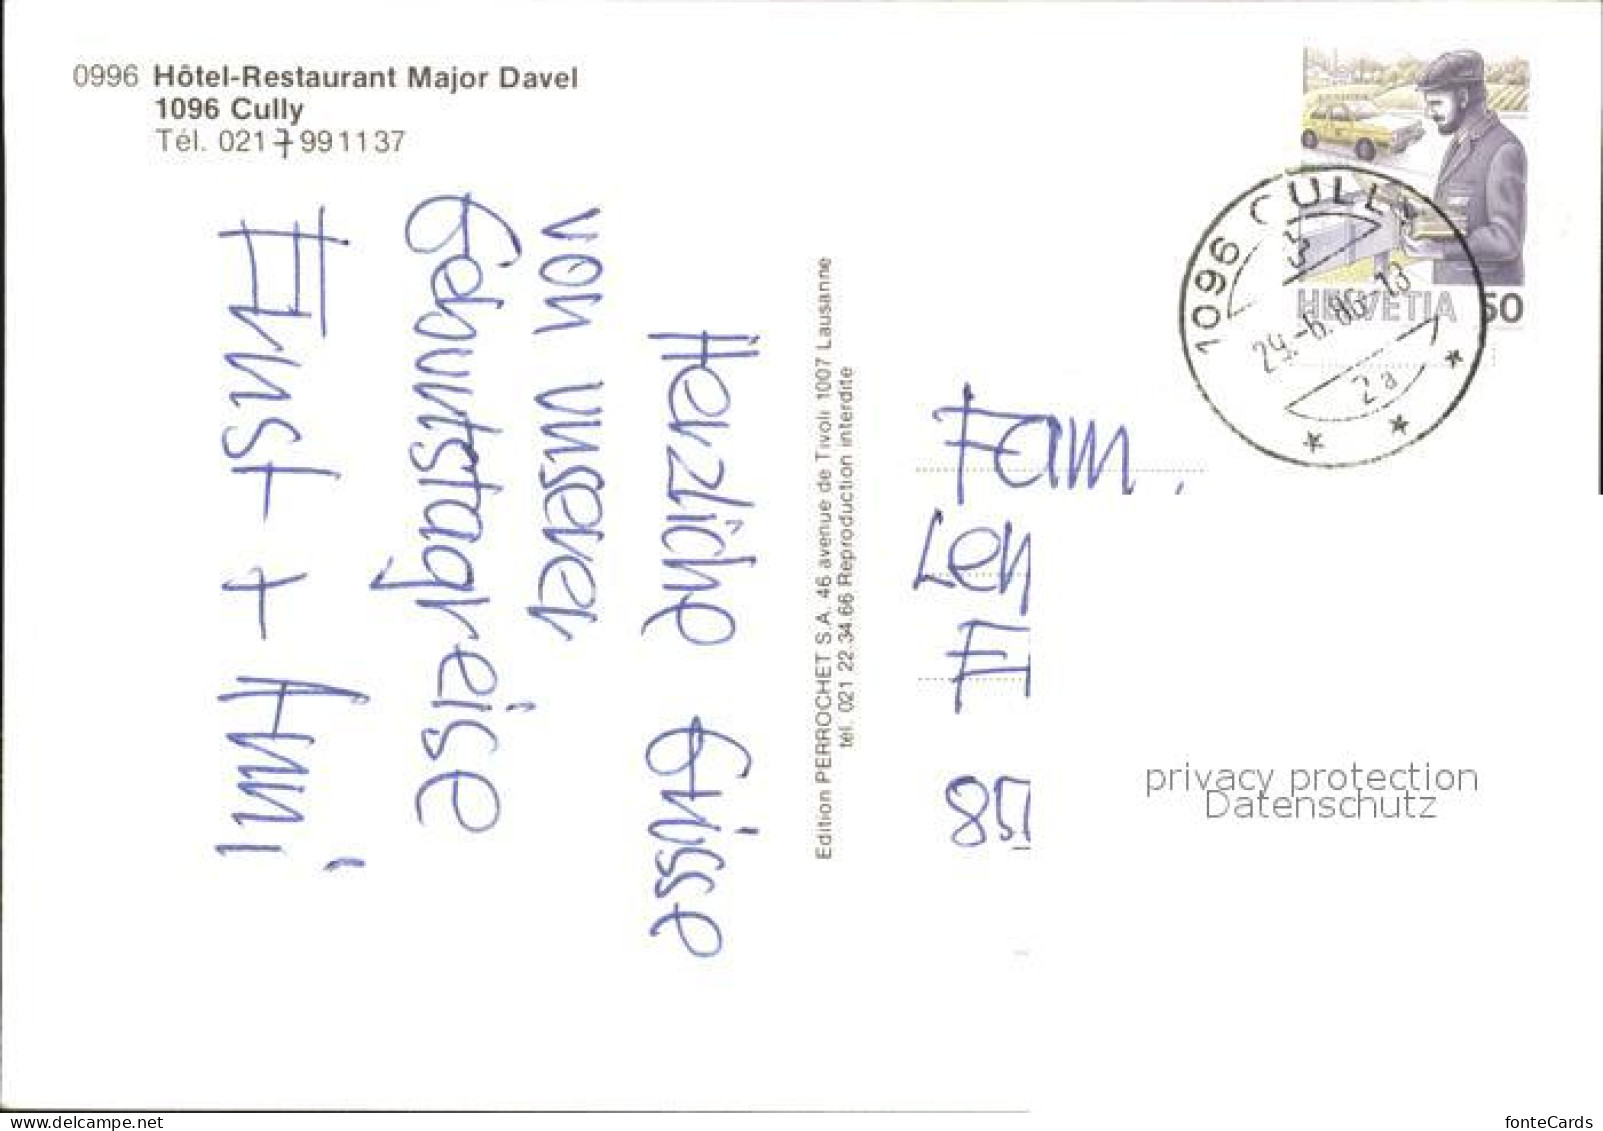 0996 Hôtel-Restaurant Major Davel
1096 Cully
Tél. 021 7 99 11 37
Herzliche Grüsse
von unserer
Geburtstagsreise
Ernst +
Edition PERROCHET S.A. 46 avenue de Tivoli 1007 Lausanne
tél. 021 22.34.66 Reproduction interdite
HELVETIA 50
1096 CULLY
29.-6.86-13
2a
Fam.
85
privacy protection
Datenschutz
www.delcampe.net
fonteCards